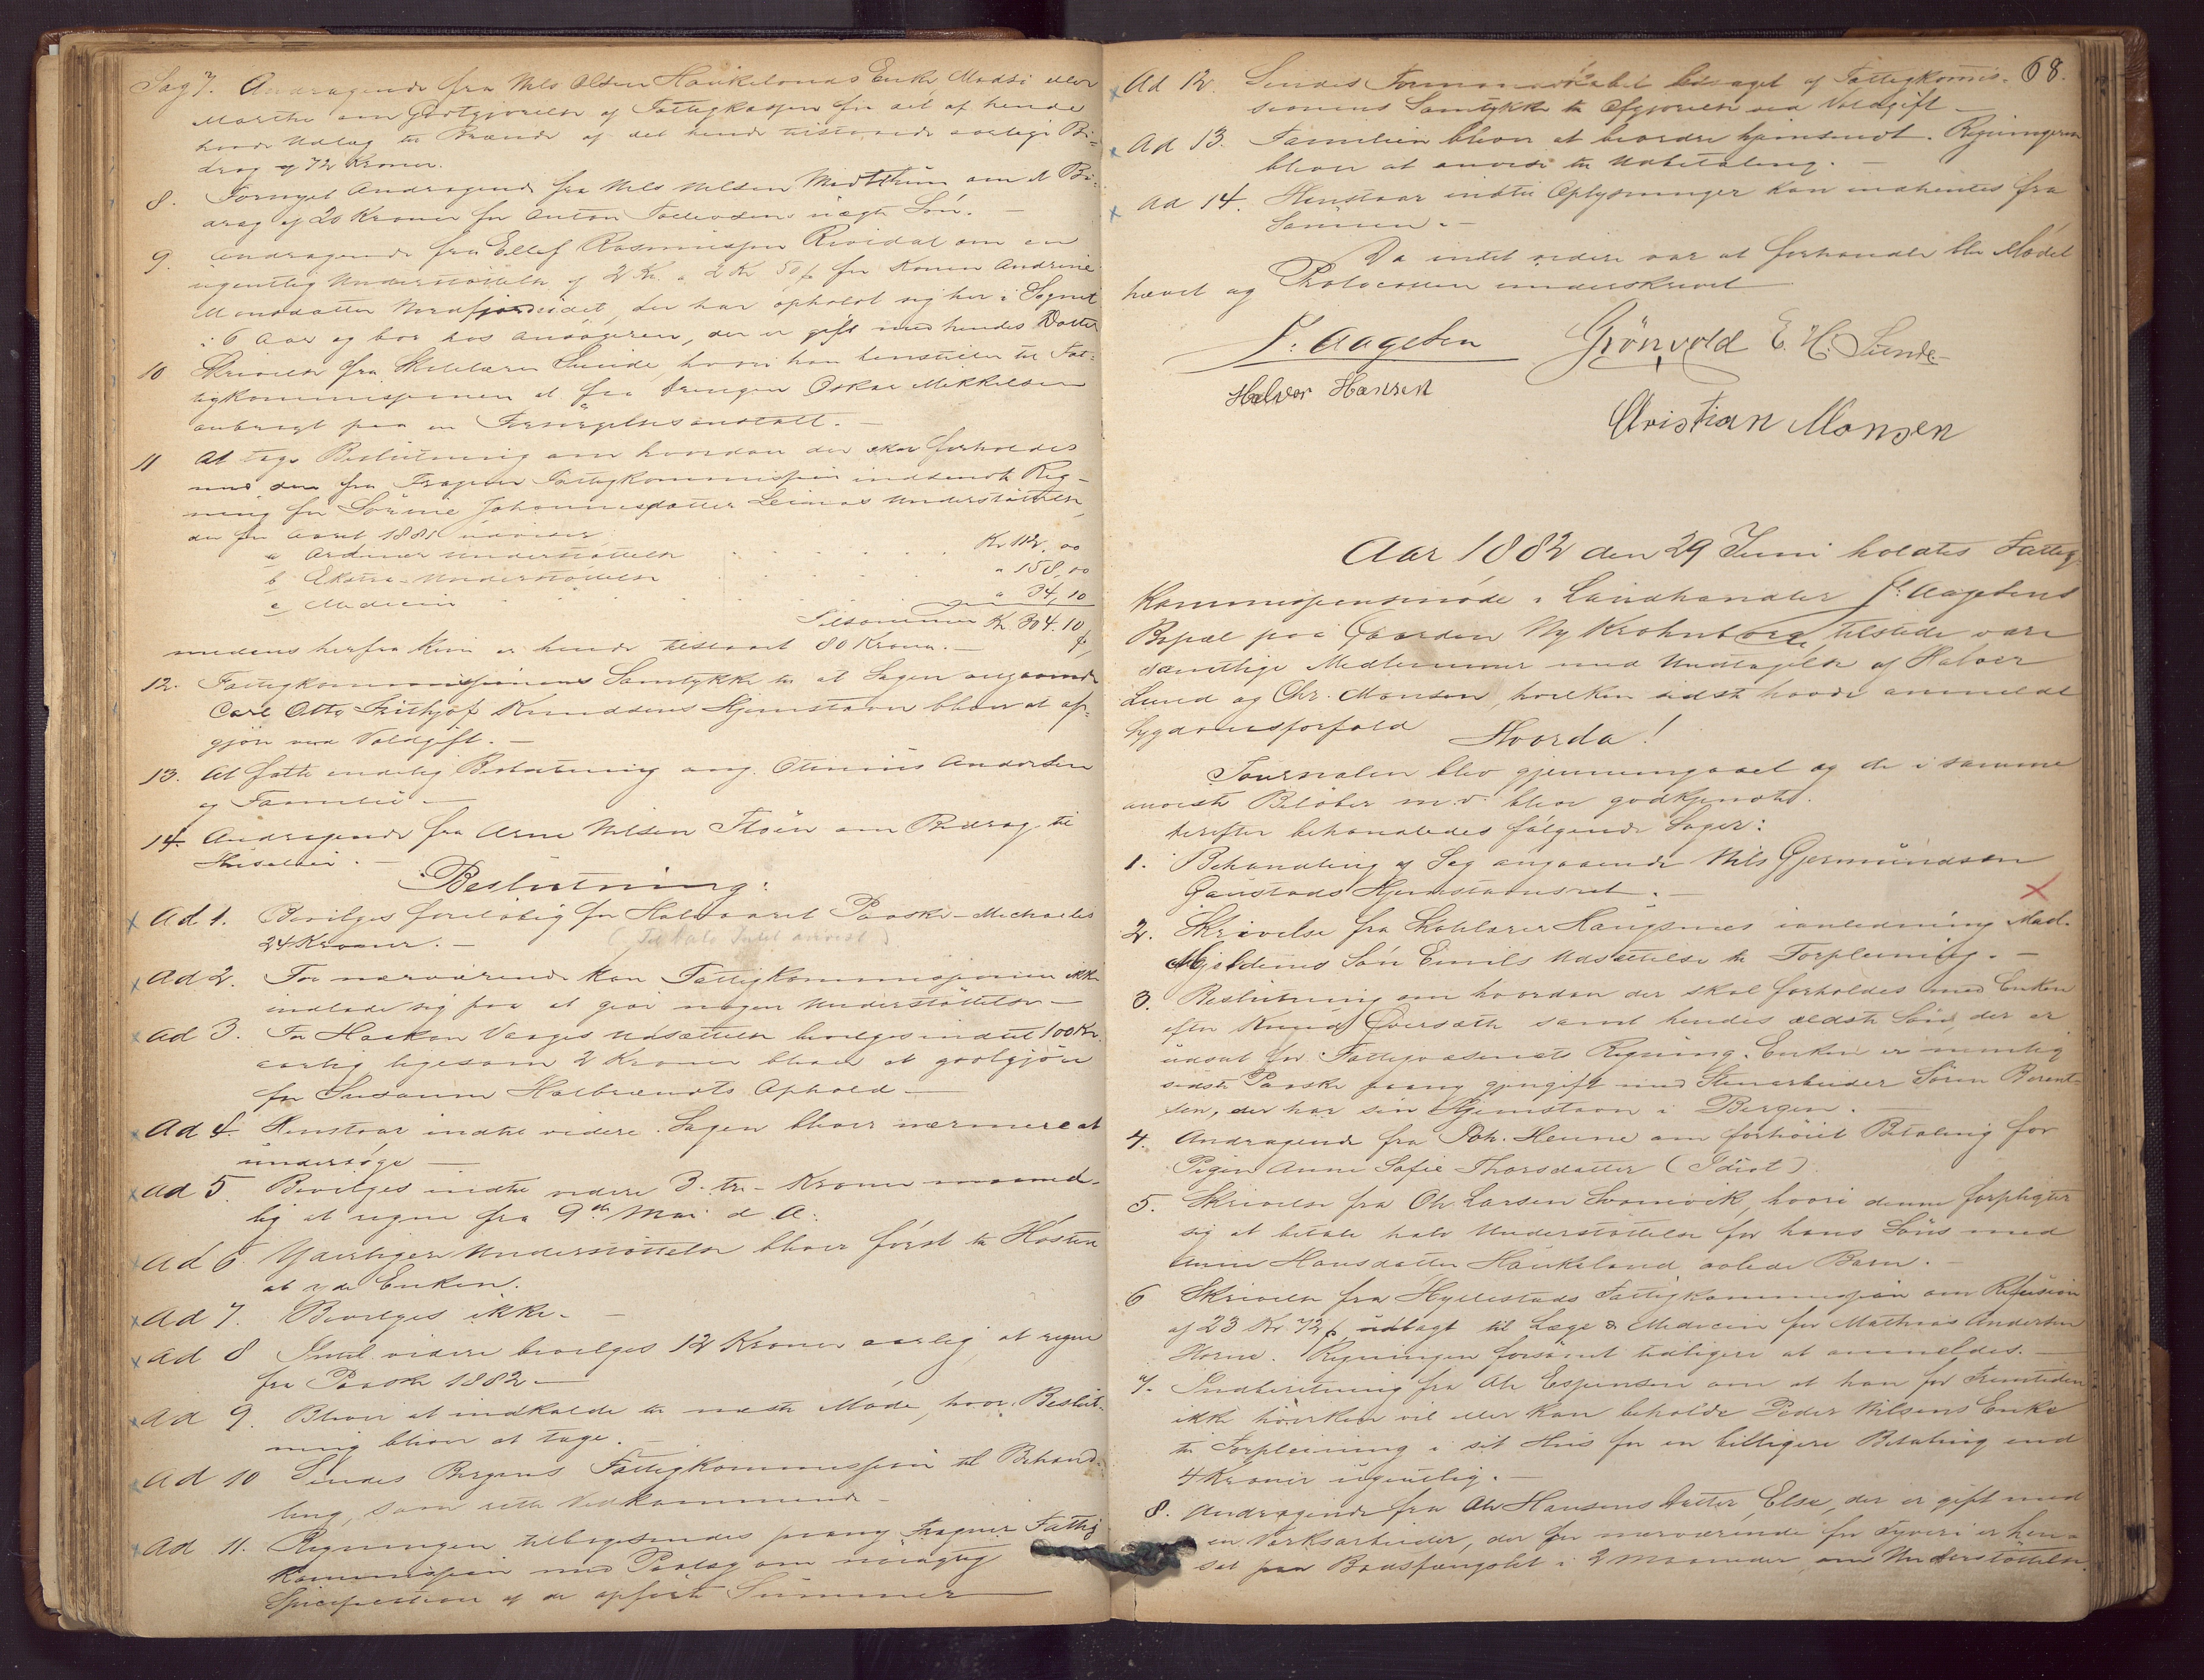 Sag 7. Andragende fra Nils Olsen Haukelands Enke, Madsi eller
Marthe om Godtgjørelse af Fattigkassen for det af hende
havde Udlæg til Brænde af det hende tilstaaede aarlige Bi-
drag af 72 Kroner.
8. Fornyet Andragende fra Nils Nilsen Midttun om et Bi-
drag af 20 Kroner for Anton Tollevsens uægte Søn. —
9. Andragende fra Ellef Rasmussen Rivedal om en
ugentlig Understøttelse af 2 Kr. a 2 Kr 50 f for Konen Andrine
Monsdatter Nordfjordeidet, der har opholdt sig her i Sognet
i 6 Aar og bor hos Ansøgeren, der er gift med hendes Datter
10 Skrivelse fra Skolelærer Sunde, hvori han henstiller til Fat-
tigkommissionen at faa Drengen Oskar Mikkelsen
anbragt paa en Forsørgelsesanstalt. —
11 At tage Beslutning om hvordan der skal forholdes
med den fra Fragner Fattigkommission indsendte Reg-
ning for Sørine Johannesdatter Leiraas Understøttelse,
der for Aaret 1881 udviser
a Ordinær Understøttelse . . . . . Kr 112,00
b Ekstra-Understøttelse . . . . . " 158,00
c Medicin . . . . . " 34,10
Tilsammen Kr. 304.10
medens herfra kun er hende tilstaaet 80 Kroner. —
12. Fattigkommissionens Samtykke til at Sagen angaaende
Carl Otto Frithjof Knudsens Hjemstavn bliver at af-
gjøre ved Voldgift. —
13. At fatte endelig Beslutning ang. Otinius Andersen
og Familie —
14. Andragende fra Arne Nilsen Støen om Bidrag til
Husleie. —
Beslutning:
Ad 1. Bevilges foreløbig for Halvaaret Paaske-Michaelis
24 Kroner. — (Til Dato Intet anvist)
Ad 2. For nærværende kan Fattigkommissionen ikke
indlade sig paa at give nogen Understøttelse —
Ad 3. For Haakon Vaages Udsættelse bevilges indtil 100 Kr.
aarlig ligesom 2 Kroner bliver at godtgjøre
for Susanne Halbrændts Ophold —
Ad 4. Henstaar indtil videre. Sagen bliver nærmere at
undersøge —
Ad 5. Bevilges indtil videre 3 - tre - Kroner maaned-
lig at regne fra 9de Mai d. A.
Ad 6 Yderligere Understøttelse bliver først til Høsten
at yde Enken.
Ad 7. Bevilges ikke. —
Ad 8 Indtil videre bevilges 12 Kroner aarlig, at regne
fra Paaske 1882 —
Ad 9. Bliver at indkalde til næste Møde, hvor Beslut-
ning bliver at tage. —
Ad 10 Sendes Bergens Fattigkommission til Behand-
ling, som rette Vedkommende —
Ad 11. Regningen tilbagesendes paany Fragner Fattig
Kommission med Paalæg om nøiagtig
Specification af de opførte Summer —
68.
Ad 12. Sendes Formandskabet bilaget af Fattigkommis-
sionens Samtykke til Afgjørelse ved Voldgift —
Ad 13. Familien bliver at beordre hjemsendt. Regningerne
bliver at anvise til Udbetaling. —
Ad 14. Henstaar indtil Oplysninger kan indhentes fra
Sønnen. —
Da intet videre var at forhandle blev Mødet
hævet og Protocollen underskrevet
J. Aagesen Grönvold E. H. Sunde
Halvor Hansen
Christian Monsen
Aar 1882 den 29 Juni holdtes Fattig
Kommissionsmøde i Landhandler J. Aagesens
Bopæl paa Gaarden Ny Krohnborg, tilstede vare
samtlige Medlemmer med Undtagelse af Halvor
Lund og Chr. Monsen, hvilken sidste havde anmeldt
Sygdomsforfald Hvorda!
Journalen blev gjennemgaaet og de i samme
anviste Beløber m.v. blev godkjendte.
Derefter behandledes følgende Sager:
1. Behandling af Sag angaaende Nils Gjermundsen
Gaustads Hjemstavnsret. —
2. Skrivelse fra Skolelærer Haugsnes i anledning Mad.
Mjeldems Søn Emils Udsættelse til Forpleining. —
3. Beslutning om hvordan der skal forholdes med Enken
efter Knud Øversæth samt hendes ældste Søn, der er
udsat for Fattigvæsenets Regning. Enken er nemlig
sidste Paaske paany gjengift med Stenarbeider Søren Berent-
sen, der har sin Hjemstavn i Bergen. —
4. Andragende fra Joh. Heune om forhøiet Betaling for
Pigen Anne Sofie Thorsdatter (Idiot).
5. Skrivelse fra Ole Larsen Svanevik, hvori denne forpligter
sig at betale halv Understøttelse for hans Søns med
Anne Hansdatter Haukeland avlede Barn. —
6 Skrivelse fra Hyllestads Fattigkommission om Refusion
af 23 Kr. 72 f. udlagt til Læge & Medicin for Mathias Andersen
Horne. Regningen forsømt tidligere at anmeldes. —
7. Indberetning fra Ole Espensen om at han for Fremtiden
ikke hverken vil eller kan beholde Peder Nilsens Enke
til Forpleining i sit Hus for en billigere Betaling end
4 Kroner ugentlig. —
8. Andragende fra Ole Hansens Datter, Else, der er gift med
en Værksarbeider, der for nærværende for Tyveri er hen-
sat paa Bodsfængslet i 2 Maaneder, om Understøttelse.